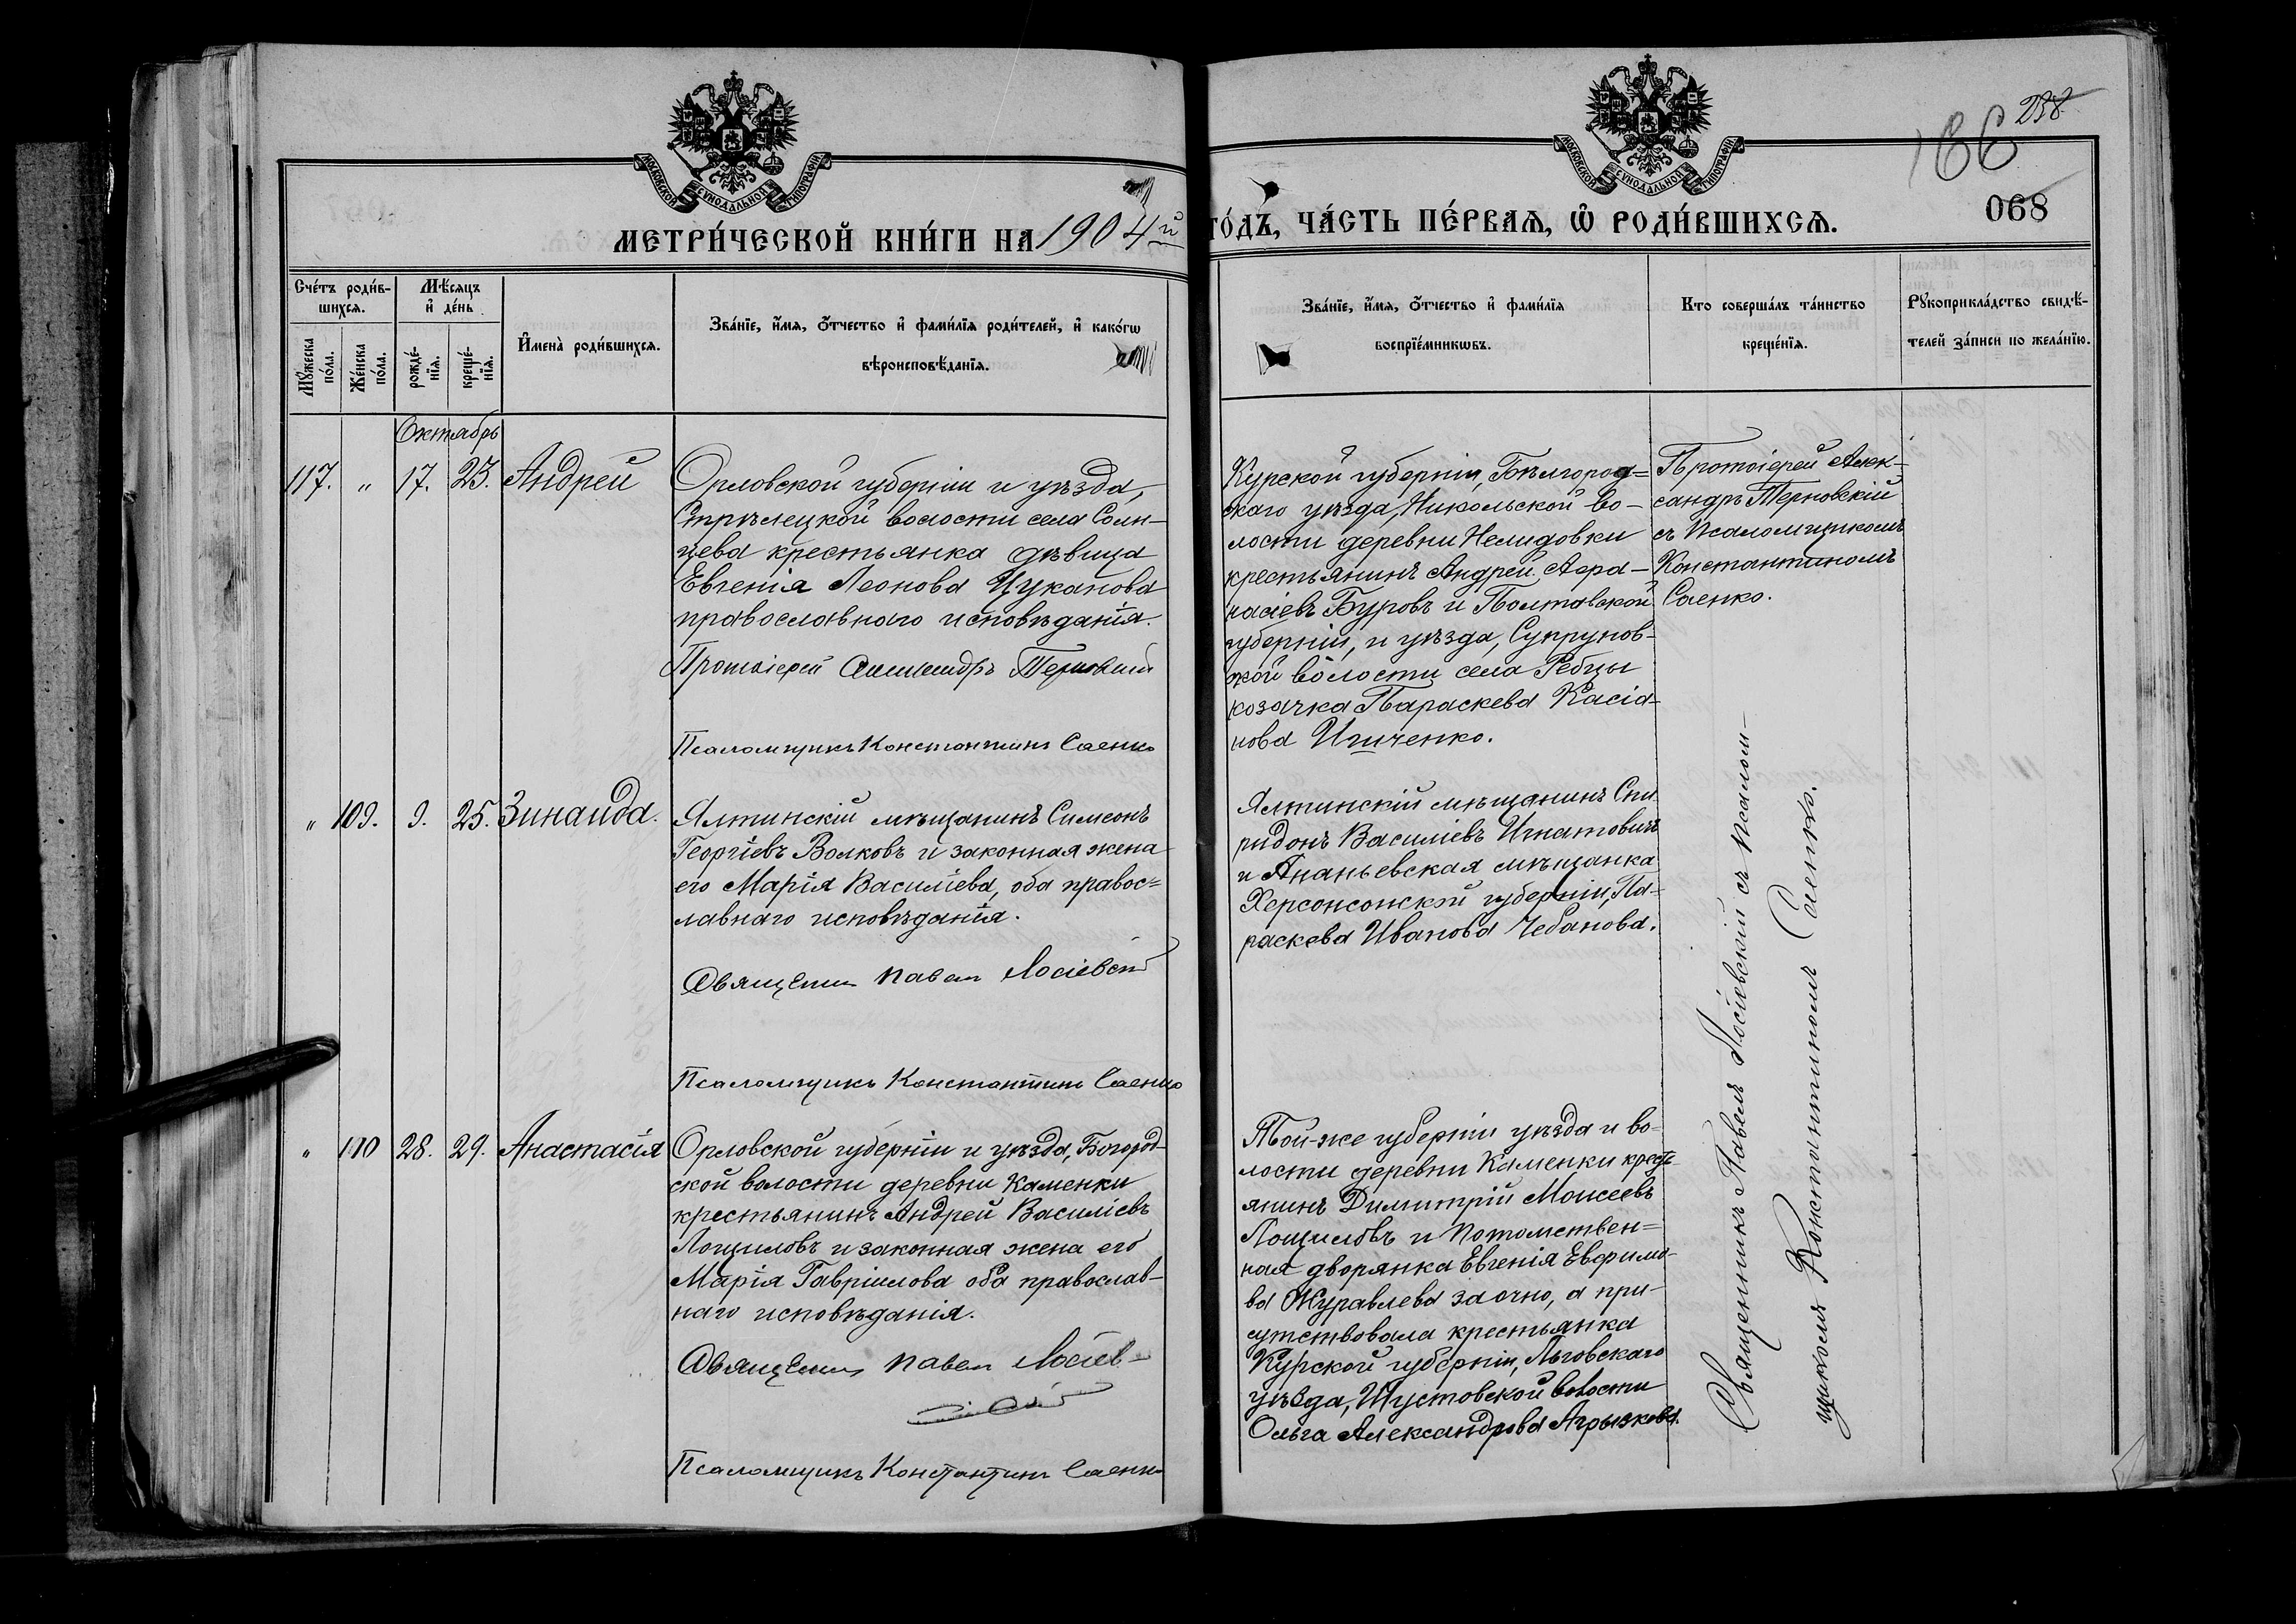 238
166
068
МОСКОВСКОЙ СѴНОДАЛЬНОЙ ТИПОГРАФІИ
МОСКОВСКОЙ СѴНОДАЛЬНОЙ ТИПОГРАФІИ
МЕТРИ́ЧЕСКОЙ КНИ́ГИ НА 1904й
ГО́ДЪ, ЧА́СТЬ ПЕ́РВАѦ, Ѡ҆ РОДИ́ВШИХСѦ.
Сче́тъ роди́в-
шихсѧ.
Мꙋ́жеска
по́ла.
Же́нска
по́ла.
Мѣ́сѧцъ
и҆ де́нь
рожде́-
нїѧ.
креще́-
нїѧ.
И҆мена̀ роди́вшихсѧ.
Зва́нїе, и҆́мѧ, ѻ҆́тчество и҆ фами́лїѧ роди́телей, и҆ како́гѡ
вѣроисповѣ́данїѧ.
Зва́нїе, и҆́мѧ, ѻ҆́тчество и҆ фами́лїѧ
воспрїе́мникѡвъ.
Кто соверша́лъ та́инство
креще́нїѧ.
Рꙋкоприкла́дство свидѣ́-
телей за́писи по жела́нїю.
Октябрь
117. " 17. 23. Андрей
Орловской губерніи и уѣзда,
Стрѣлецкой волости села Солн-
цева крестьянка дѣвица
Евгенія Леонова Цуканова
православнаго исповѣданія.
Протоіерей Александръ Терновскій
Псаломщикъ Константинъ Саенко
Курской губерніи, Бѣлгород=
скаго уѣзда, Никольской во-
лости деревни Нелидовки
крестьянинъ Андрей Афа-
насіевъ Буровъ и Полтавской
губерніи, и уѣзда, Супрунов-
ской волости села Рыбцы
козачка Параскева Касіа-
нова Ищенко.
Протоіерей Алек-
сандръ Терновскій
съ псаломщикомъ
Константиномъ
Саенко.
" 109. 9. 25. Зинаида.
Ялтинскій мѣщанинъ Симеонъ
Георгіевъ Волковъ и законная жена
его Марія Василіева, оба правос=
лавнаго исповѣданія.
Священникъ Павелъ Лосіевскій
Псаломщикъ Константинъ Саенко
Ялтинскій мѣщанинъ Спи-
ридонъ Василіевъ Игнатовичъ
и Ананьевская мѣщанка
Херсонсонской губерніи, Па-
раскева Иванова Чебанова.
" 110 28. 29. Анастасія
Орловской губерніи и уѣзда, Богород-
ской волости деревни Каменки
крестьянинъ Андрей Василіевъ
Лощиловъ и законная жена его
Марія Гавріилова оба православ-
наго исповѣданія.
Священникъ Павелъ Лосіев-
скій
Псаломщикъ Константинъ Саенко
Той-же губерніи уѣзда и во-
лости деревни Каменки крест-
янинъ Димитрій Моисеевъ
Лощиловъ и потомствен=
ная дворянка Евгенія Евфимо-
ва Журавлева заочно, а при-
сутствовала крестьянка
Курской губерніи, Льговскаго
уѣзда, Шустовской волости
Ольга Александрова Агрызкова.
Священникъ Павелъ Лосіевскій съ псалом-
щикомъ Константиномъ Саенко.